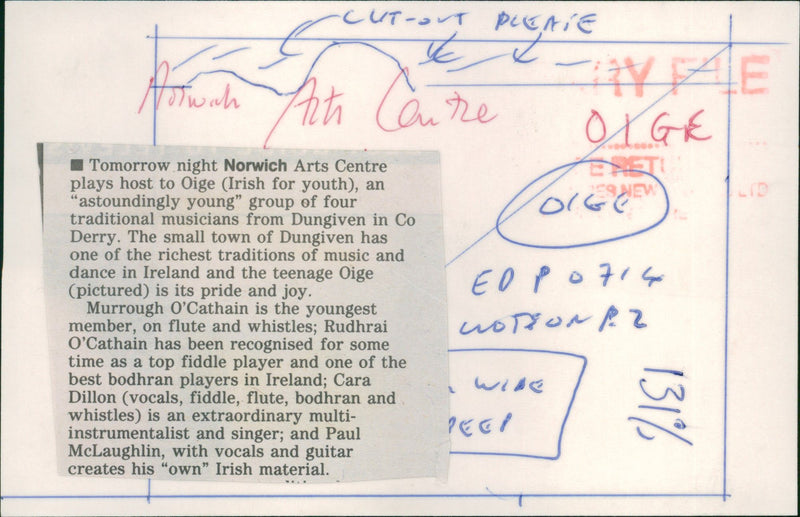 CUT-OUT PLEASE
Norwich Arts Centre
RY FILE
OIGE
E RET
ES NEW LTD
OIGE
■ Tomorrow night Norwich Arts Centre
plays host to Oige (Irish for youth), an
“astoundingly young” group of four
traditional musicians from Dungiven in Co
Derry. The small town of Dungiven has
one of the richest traditions of music and
dance in Ireland and the teenage Oige
(pictured) is its pride and joy.
Murrough O’Cathain is the youngest
member, on flute and whistles; Rudhrai
O’Cathain has been recognised for some
time as a top fiddle player and one of the
best bodhran players in Ireland; Cara
Dillon (vocals, fiddle, flute, bodhran and
whistles) is an extraordinary multi-
instrumentalist and singer; and Paul
McLaughlin, with vocals and guitar
creates his “own” Irish material.
EDP 0714
WIDE
DEEP
131%